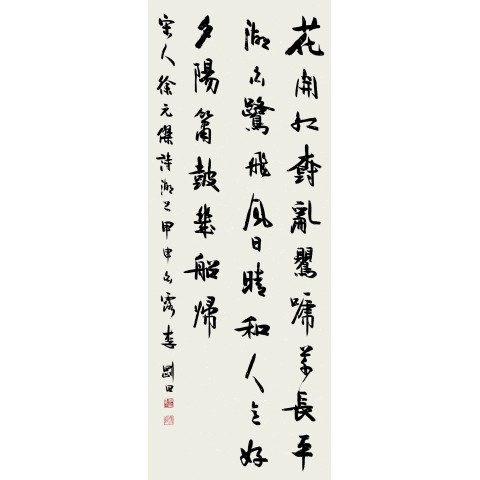 花開紅樹亂鶯啼草長平
湖白鷺飛風日晴和人意好
夕陽簫鼓幾船歸
宋人徐元傑詩湖上甲申白露李剛田